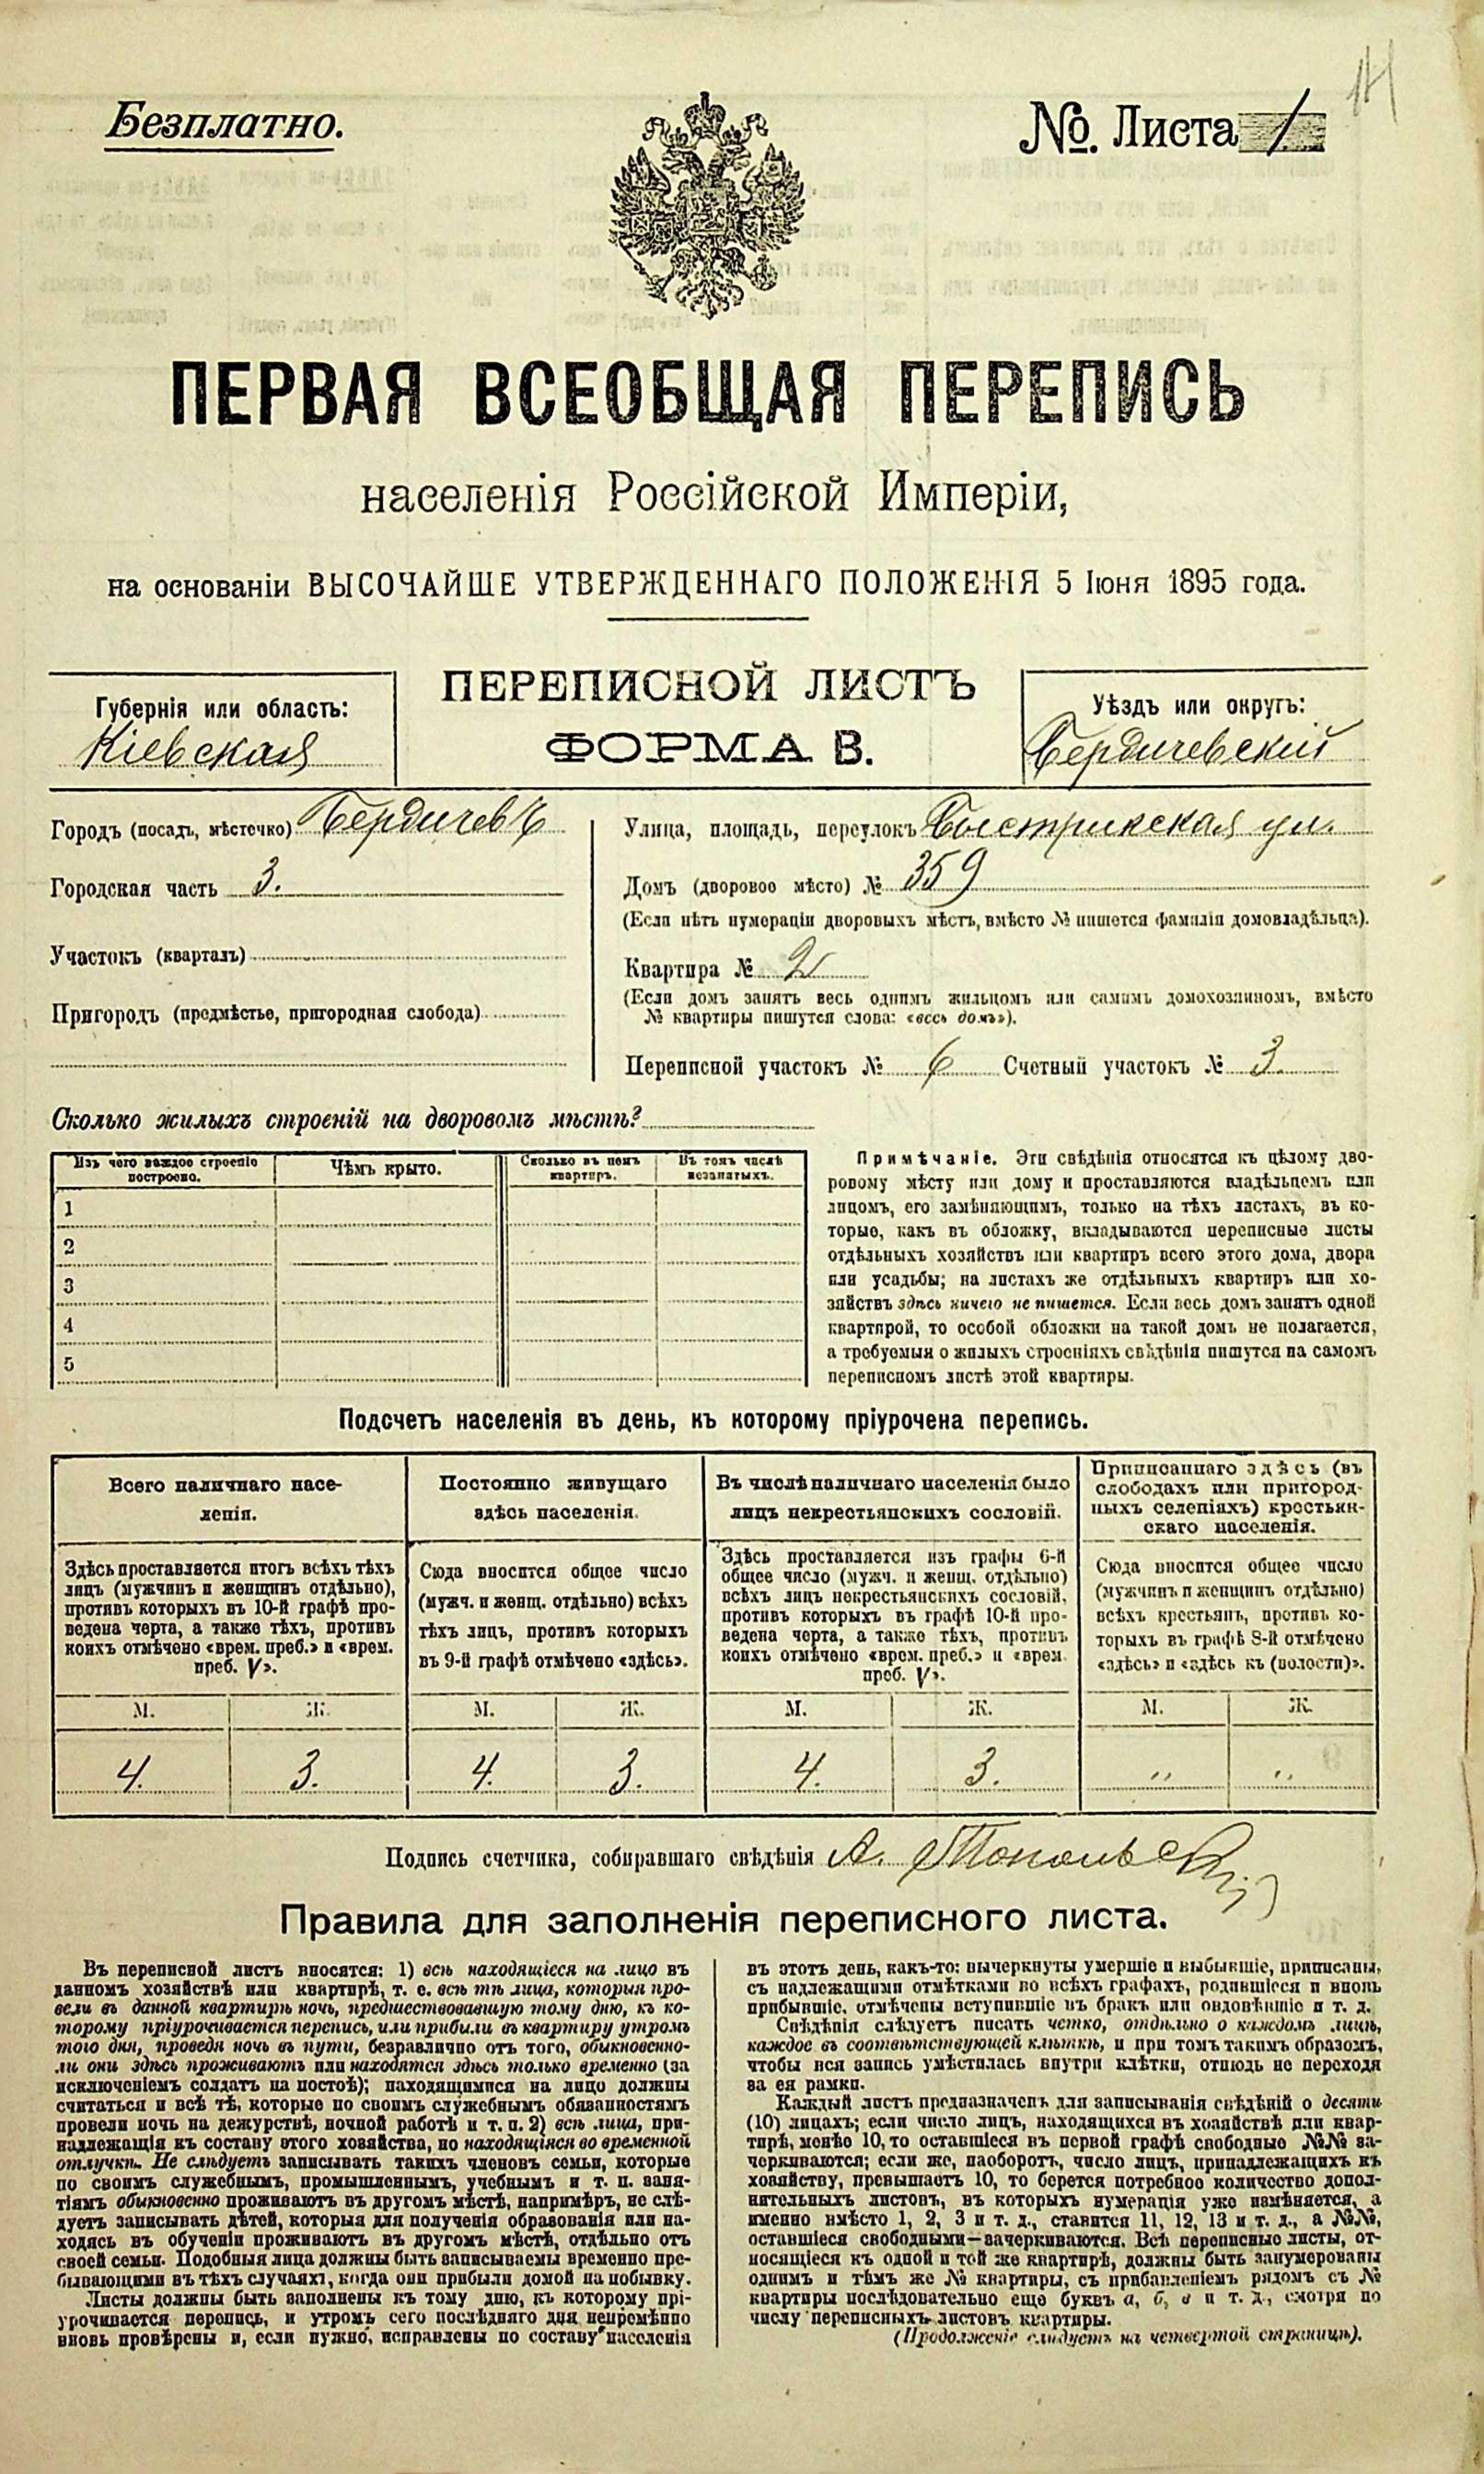 Безплатно.
№. Листа 1
14
ПЕРВАЯ ВСЕОБЩАЯ ПЕРЕПИСЬ
населенія Россійской Имперіи,
на основаніи ВЫСОЧАЙШЕ УТВЕРЖДЕННАГО ПОЛОЖЕНІЯ 5 Іюня 1895 года.
Губернія или область:
Кіевская
ПЕРЕПИСНОЙ ЛИСТЪ
ФОРМА В.
Уѣздъ или округъ:
Бердичевскій
Городъ (посадъ, мѣстечко) Бердичевъ
Городская часть 3.
Участокъ (кварталъ)
Пригородъ (предмѣстье, пригородная слобода)
Улица, площадь, переулокъ Быстрикская ул.
Домъ (дворовое мѣсто) № 359
(Если нѣтъ нумераціи дворовыхъ мѣстъ, вмѣсто № пишется фамилія домовладѣльца).
Квартира № 2
(Если домъ занятъ весь однимъ жильцомъ или самимъ домохозяиномъ, вмѣсто
№ квартиры пишутся слова: «весь домъ»).
Переписной участокъ № 6 Счетный участокъ № 3.
Сколько жилыхъ строеній на дворовомъ мѣстѣ?
Изъ чего каждое строеніе
построено.
Чѣмъ крыто.
Сколько въ немъ
квартиръ.
Въ томъ числѣ
незанятыхъ.
1
2
3
4
5
Примѣчаніе. Эти свѣдѣнія относятся къ цѣлому дво-
ровому мѣсту или дому и проставляются владѣльцемъ или
лицомъ, его замѣняющимъ, только на тѣхъ листахъ, въ ко-
торые, какъ въ обложку, вкладываются переписные листы
отдѣльныхъ хозяйствъ или квартиръ всего этого дома, двора
или усадьбы; на листахъ же отдѣльныхъ квартиръ или хо-
зяйствъ здѣсь ничего не пишется. Если весь домъ занятъ одной
квартирой, то особой обложки на такой домъ не полагается,
а требуемыя о жилыхъ строеніяхъ свѣдѣнія пишутся на самомъ
переписномъ листѣ этой квартиры.
Подсчетъ населенія въ день, къ которому пріурочена перепись.
Всего наличнаго насе-
ленія.
Здѣсь проставляется итогъ всѣхъ тѣхъ
лицъ (мужчинъ и женщинъ отдѣльно),
противъ которыхъ въ 10-й графѣ про-
ведена черта, а также тѣхъ, противъ
коихъ отмѣчено «врем. преб.» и «врем.
преб. V».
М. Ж.
4. 3.
Постоянно живущаго
здѣсь населенія.
Сюда вносится общее число
(мужч. и женщ. отдѣльно) всѣхъ
тѣхъ лицъ, противъ которыхъ
въ 9-й графѣ отмѣчено «здѣсь».
М. Ж.
4. 3.
Въ числѣ наличнаго населенія было
лицъ некрестьянскихъ сословій.
Здѣсь проставляется изъ графы 6-й
общее число (мужч. и женщ. отдѣльно)
всѣхъ лицъ некрестьянскихъ сословій,
противъ которыхъ въ графѣ 10-й про-
ведена черта, а также тѣхъ, противъ
коихъ отмѣчено «врем. преб.» и «врем.
преб. V».
М. Ж.
4. 3.
Приписаннаго здѣсь (въ
слободахъ или пригород-
ныхъ селеніяхъ) крестьян-
скаго населенія.
Сюда вносится общее число
(мужчинъ и женщинъ отдѣльно)
всѣхъ крестьянъ, противъ ко-
торыхъ въ графѣ 8-й отмѣчено
«здѣсь» и «здѣсь къ (волости)».
М. Ж.
" "
Подпись счетчика, собиравшаго свѣдѣнія А. Топольскій
Правила для заполненія переписного листа.
Въ переписной листъ вносятся: 1) всѣ находящіеся на лицо въ
данномъ хозяйствѣ или квартирѣ, т. е. всѣ тѣ лица, которыя про-
вели въ данной квартирѣ ночь, предшествовавшую тому дню, къ ко-
торому пріурочивается перепись, или прибыли въ квартиру утромъ
того дня, проведя ночь въ пути, безразлично отъ того, обыкновенно-
ли они здѣсь проживаютъ или находятся здѣсь только временно (за
исключеніемъ солдатъ на постоѣ); находящимися на лицо должны
считаться и всѣ тѣ, которые по своимъ служебнымъ обязанностямъ
провели ночь на дежурствѣ, ночной работѣ и т. п. 2) всѣ лица, при-
надлежащія къ составу этого хозяйства, но находящіяся во временной
отлучкѣ. Не слѣдуетъ записывать такихъ членовъ семьи, которые
по своимъ служебнымъ, промышленнымъ, учебнымъ и т. п. заня-
тіямъ обыкновенно проживаютъ въ другомъ мѣстѣ, напримѣръ, не слѣ-
дуетъ записывать дѣтей, которыя для полученія образованія или на-
ходясь въ обученіи проживаютъ въ другомъ мѣстѣ, отдѣльно отъ
своей семьи. Подобныя лица должны быть записываемы временно пре-
бывающими въ тѣхъ случаяхъ, когда они прибыли домой на побывку.
Листы должны быть заполнены къ тому дню, къ которому прі-
урочивается перепись, и утромъ сего послѣдняго дня непремѣнно
вновь провѣрены и, если нужно, исправлены по составу населенія
въ этотъ день, какъ-то: вычеркнуты умершіе и выбывшіе, приписаны,
съ надлежащими отмѣтками во всѣхъ графахъ, родившіеся и вновь
прибывшіе, отмѣчены вступившіе въ бракъ или овдовѣвшіе и т. д.
Свѣдѣнія слѣдуетъ писать четко, отдѣльно о каждомъ лицѣ,
каждое въ соотвѣтствующей клѣткѣ, и при томъ такимъ образомъ,
чтобы вся запись умѣстилась внутри клѣтки, отнюдь не переходя
за ея рамки.
Каждый листъ предназначенъ для записыванія свѣдѣній о десяти
(10) лицахъ; если число лицъ, находящихся въ хозяйствѣ или квар-
тирѣ, менѣе 10, то оставшіеся въ первой графѣ свободные №№ за-
черкиваются; если же, наоборотъ, число лицъ, принадлежащихъ къ
хозяйству, превышаетъ 10, то берется потребное количество допол-
нительныхъ листовъ, въ которыхъ нумерація уже измѣняется, а
именно вмѣсто 1, 2, 3 и т. д., ставится 11, 12, 13 и т. д., а №№,
оставшіеся свободными—зачеркиваются. Всѣ переписные листы, от-
носящіеся къ одной и той же квартирѣ, должны быть занумерованы
однимъ и тѣмъ же № квартиры, съ прибавленіемъ рядомъ съ №
квартиры послѣдовательно еще буквъ а, б, в и т. д., смотря по
числу переписныхъ листовъ квартиры.
(Продолженіе слѣдуетъ на четвертой страницѣ).